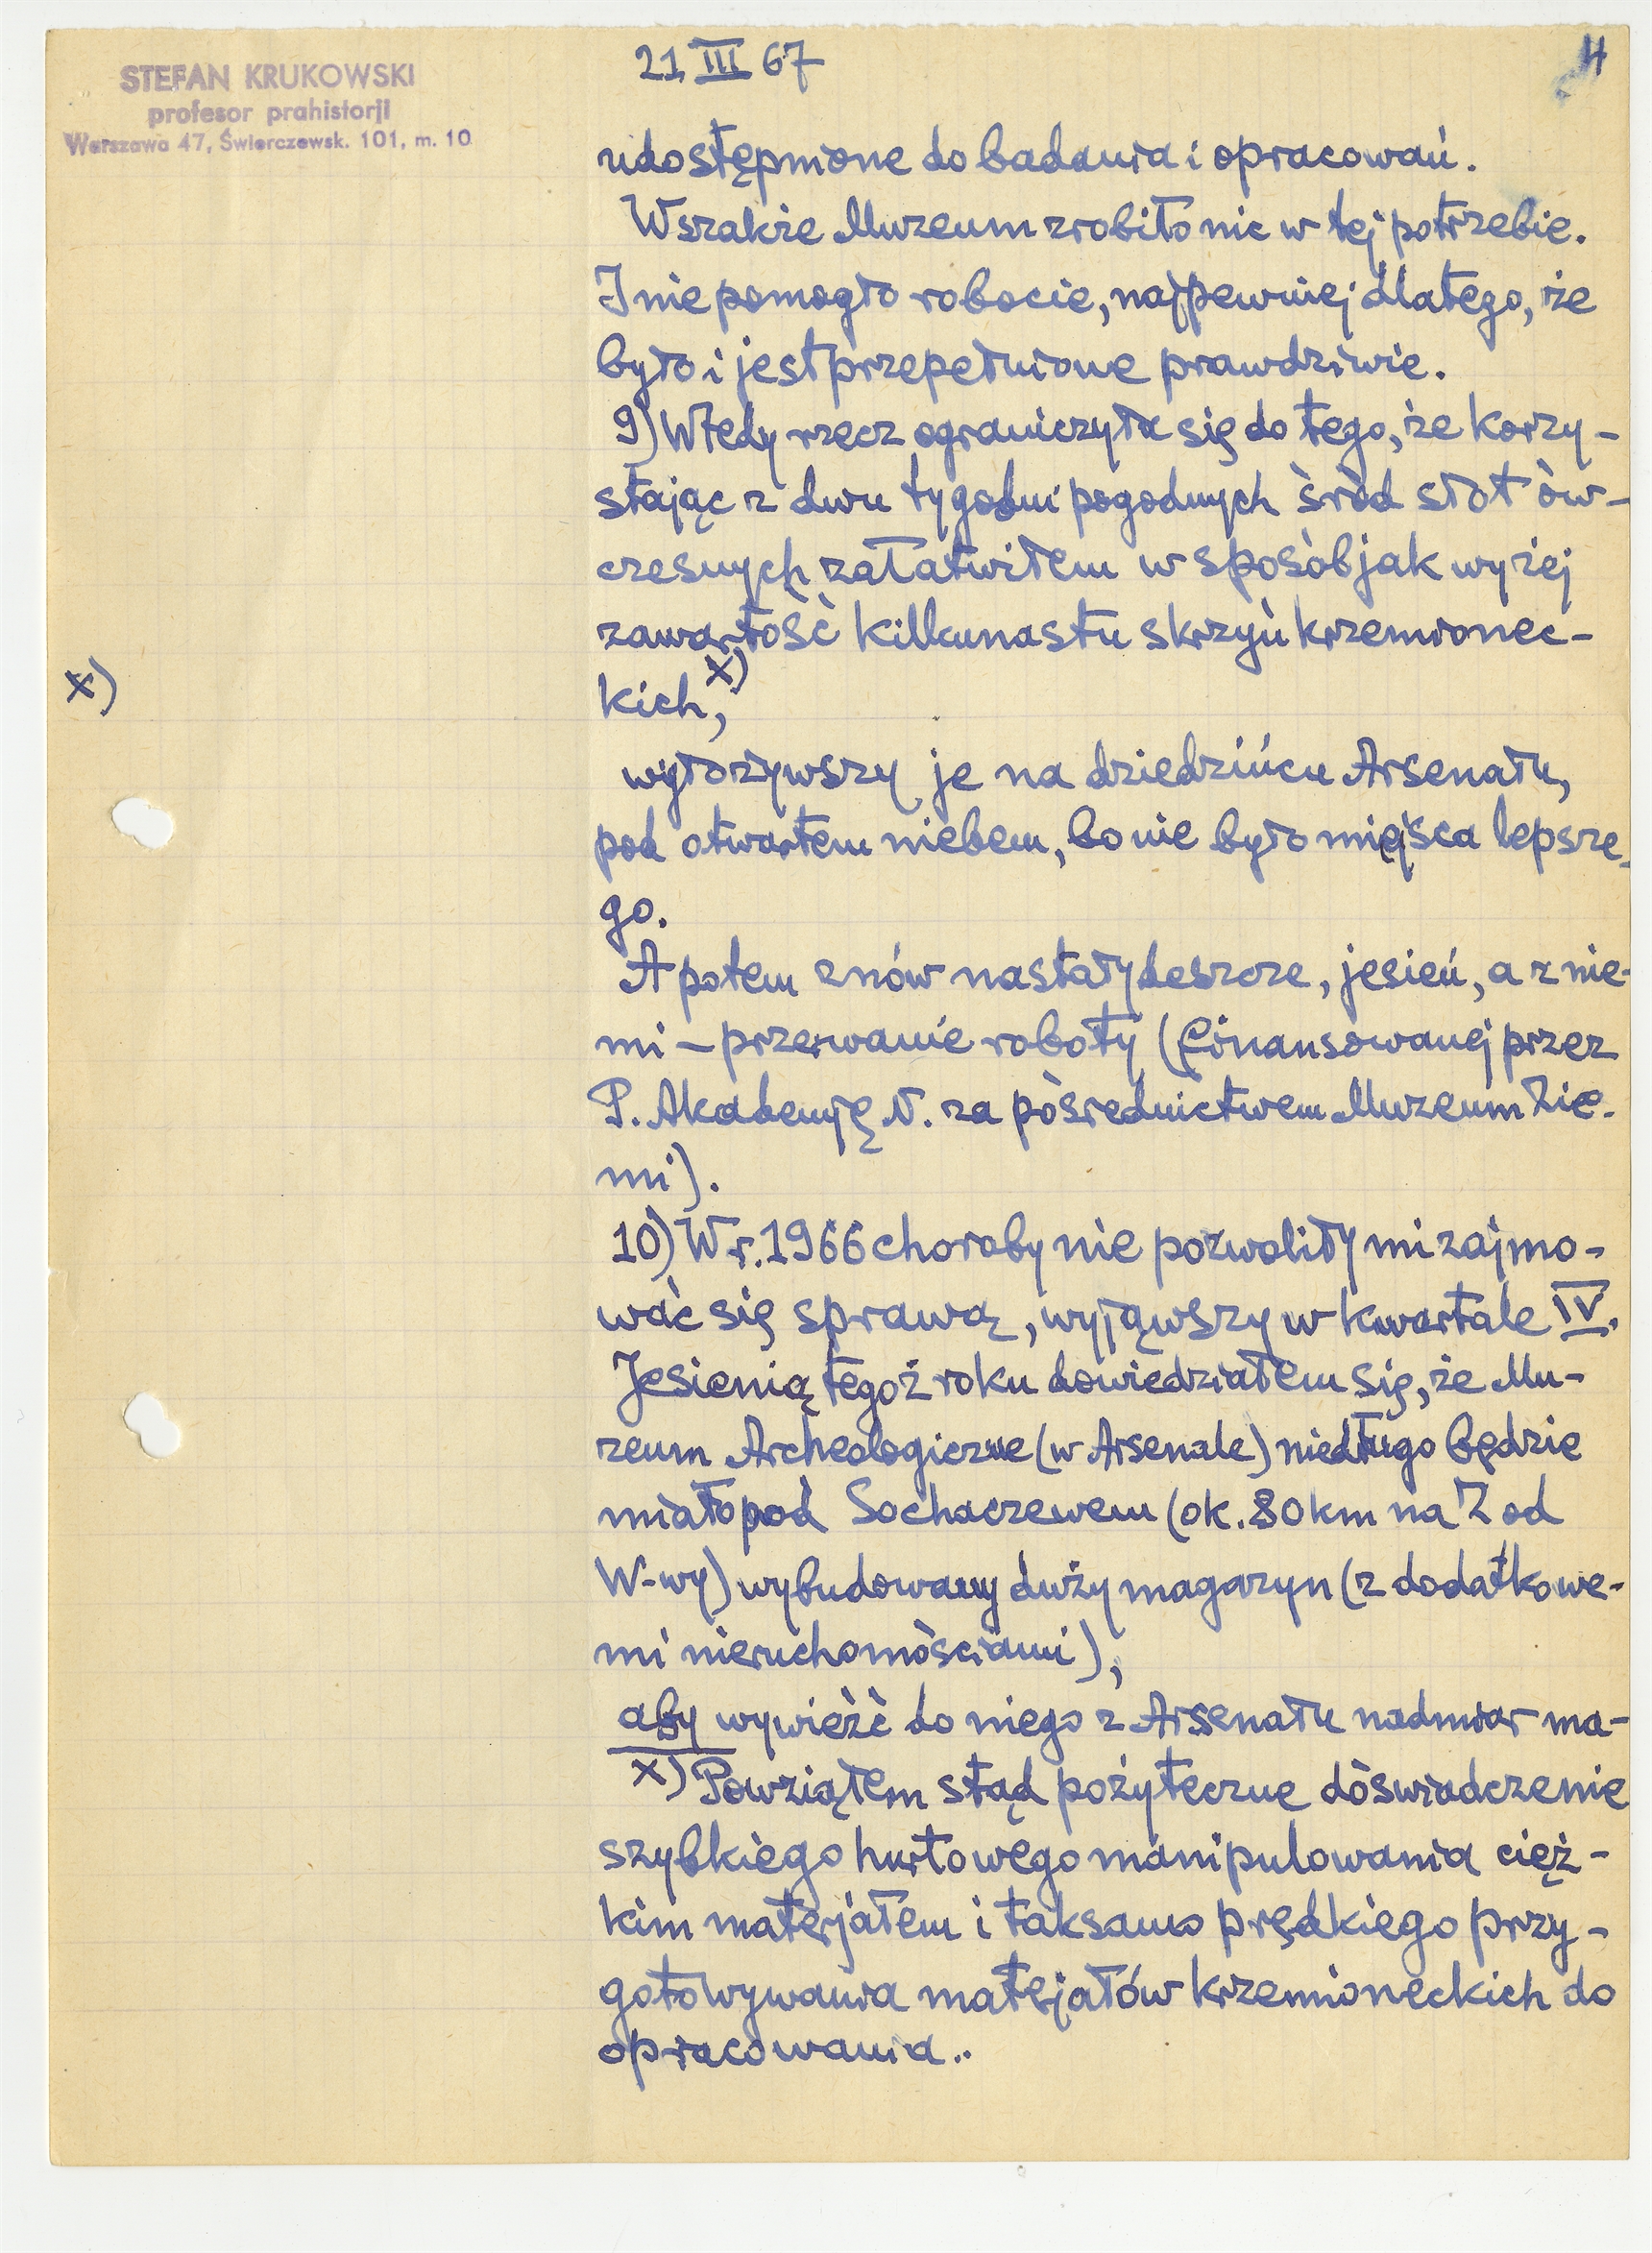 STEFAN KRUKOWSKI
profesor prahistorji
Warszawa 47, Świerczewsk. 101, m. 10
21 III 67
4
udostępnione do badania i opracowań.
Wszakże Muzeum zrobiło nic w tej potrzebie.
I nie pomogło robocie, najpewniej dlatego, że
było i jest przepełnione prawdziwie.
9) Wtedy rzecz ograniczyła się do tego, że korzy-
stając z dwu tygodni pogodnych śród słot ów-
czesnych załatwiłem w sposób jak wyżej
zawartość kilkunastu skrzyń krzemionec-
x)
kich, x)
wyłożywszy je na dziedzińcu Arsenału,
pod otwartem niebem, bo nie było miejsca lepsze-
go.
A potem znów nastały deszcze, jesień, a z nie-
mi – przerwanie roboty (finansowanej przez
P. Akademję N. za pośrednictwem Muzeum Zie-
mi).
10) W r. 1966 choroby nie pozwoliły mi zajmo-
wać się sprawą, wyjąwszy w kwartale IV.
Jesienią tegoż roku dowiedziałem się, że Mu-
zeum Archeologiczne (w Arsenale) niedługo będzie
miało pod Sochaczewem (ok. 80 km na Z od
W-wy) wybudowany duży magazyn (z dodatkowe-
mi nieruchomościami),
aby wywieźć do niego z Arsenału nadmiar ma-
x) Powziąłem stąd pożyteczne doświadczenie
szybkiego hurtowego manipulowania cięż-
kim materjałem i taksamo prędkiego przy-
gotowywania materjałów krzemioneckich do
opracowania..